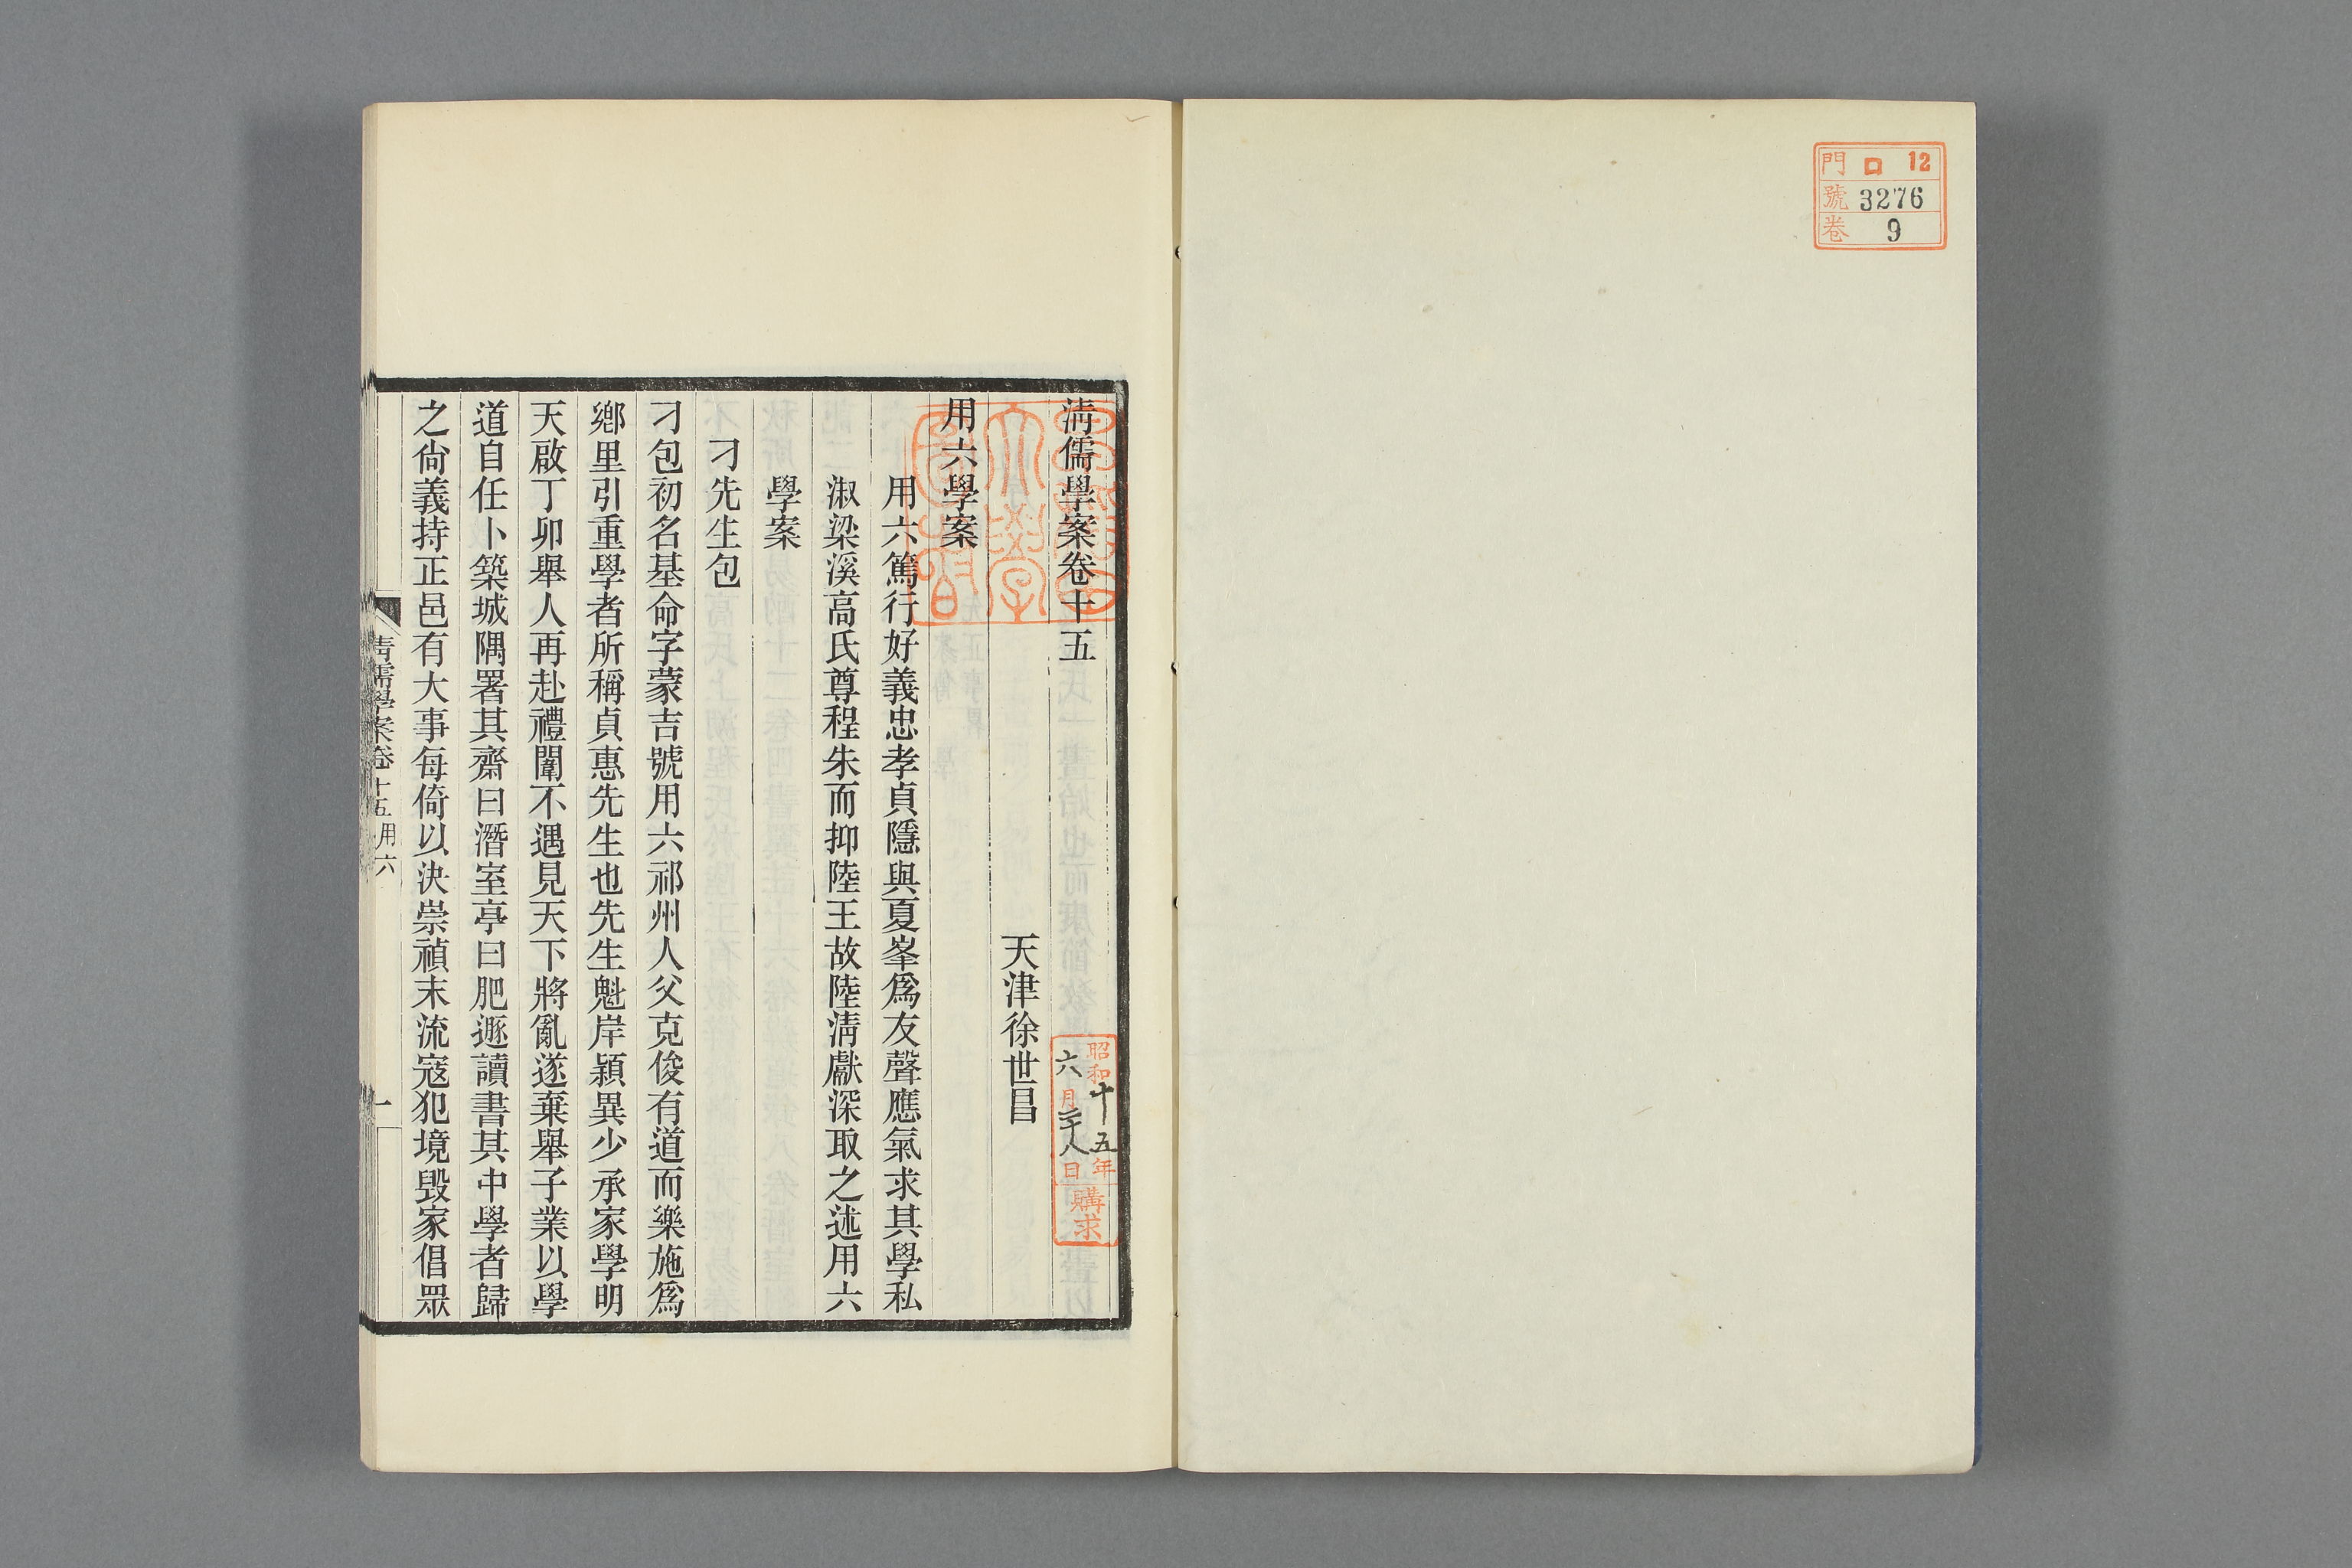 門 口 12
號 3276
卷 9
清儒學案卷十五
天津徐世昌
昭和十五年
六月二十八日
購求
用六學案
用六篤行好義忠孝貞隱與夏峯爲友聲應氣求其學私
淑梁溪高氏尊程朱而抑陸王故陸清獻深取之述用六
學案
刁先生包
刁包初名基命字蒙吉號用六祁州人父克俊有道而樂施爲
鄉里引重學者所稱貞惠先生也先生魁岸穎異少承家學明
天啟丁卯舉人再赴禮闈不遇見天下將亂遂棄舉子業以學
道自任卜築城隅署其齋曰潛室亭曰肥遯讀書其中學者歸
之尙義持正邑有大事每倚以決崇禎末流寇犯境毀家倡眾
清儒學案卷十五 用六
一